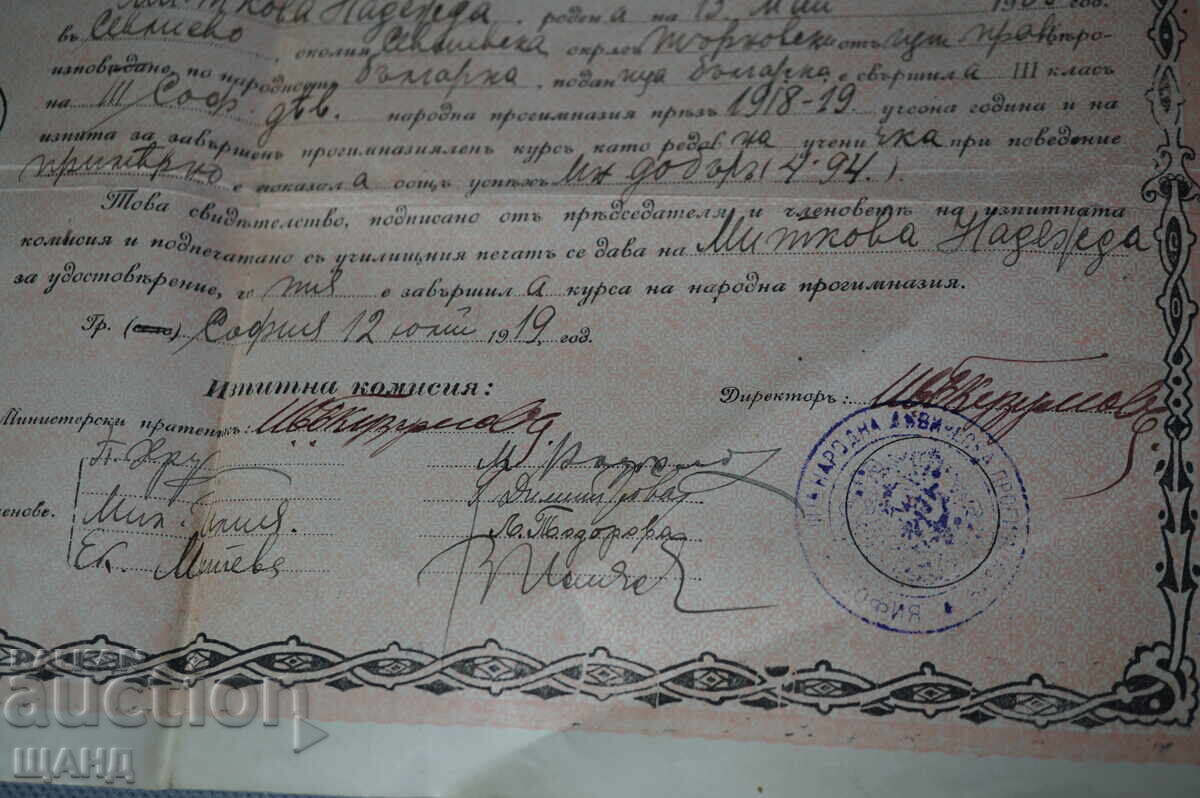 Миткова Надежда, родена на 13 Май год.
въ Севлиево околия Севлиевска окръгъ Търновски отъ изт. прав. вѣро-
изповѣдане, по народность българка, поданица българка, е свършила III класъ
на III Соф. дѣв. народна прогимназия прѣзъ 1918-19 учебна година и на
изпита за завършенъ прогимназияленъ курсъ като редовна ученичка при поведение
примѣрно е показала общъ успѣхъ Мн. добъръ 4·94.
Това свидѣтелство, подписано отъ прѣдседателя и членоветѣ на изпитната
комисия и подпечатано съ училищния печатъ се дава на Миткова Надежда
за удостовѣрение, че тя е завършила курса на народна прогимназия.
Гр. (село) София 12 юний 1919 год.
Изпитна комисия:
Министерски пратеникъ:
Директоръ:
членове.
Мих.
Ек. Митева
Димитрова
Л. Тодорова
НАРОДНА ДѢВИЧЕСКА
BALKAN
auction
ШАНД